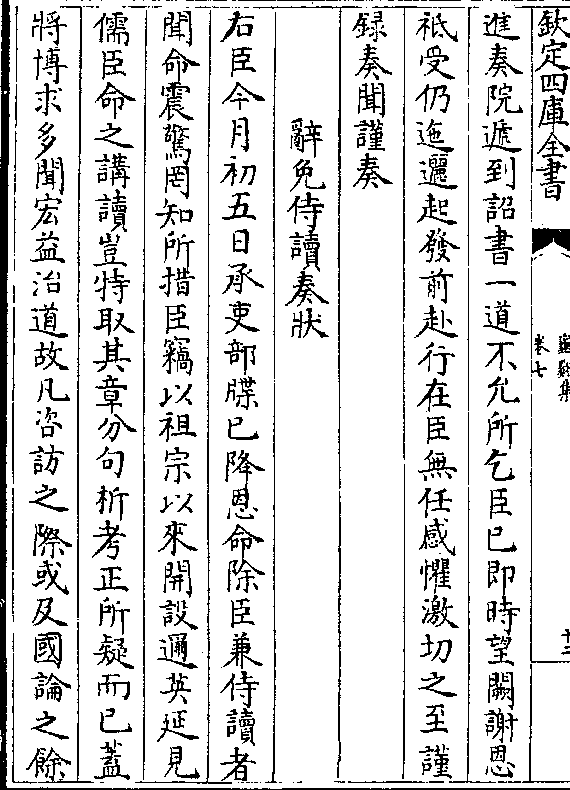 欽定四庫全書
卷七
十二
進奏院遞到詔書一道不允所乞臣已即時望闕謝恩
祗受仍迤邐起發前赴行在臣無任感懼激切之至謹
録奏聞謹奏
辭免侍讀奏狀
右臣今月初五日承吏部牒已降恩命除臣兼侍讀者
聞命震驚罔知所措臣竊以祖宗以來開設邇英延見
儒臣命之講讀豈特取其章分句析考正所疑而已蓋
將博求多聞宏益治道故凡咨訪之際或及國論之餘